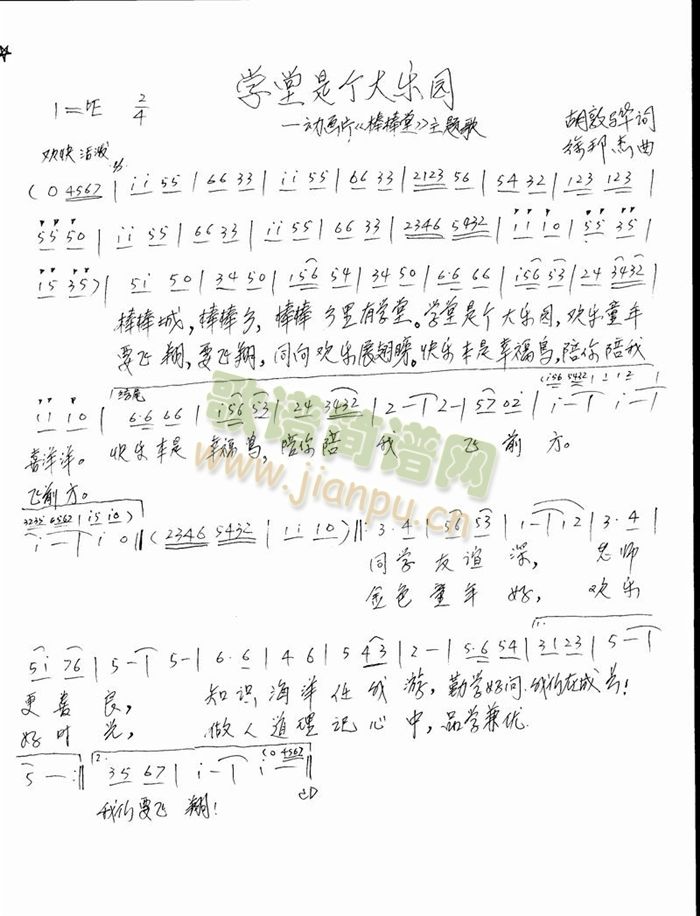 学堂是个大乐园
—动画片《棒棒堂》主题歌
1=♭E 2/4
胡敦骅词
徐邦杰曲
欢快 活泼
(0 4567 | i i 5 5 | 6 6 3 3 | i i 5 5 | 6 6 3 3 | 2123 5 6 | 5 4 3 2 | 1 23 1 23 |
5 5 5 0 | i i 5 5 | 6 6 3 3 | i i 5 5 | 6 6 3 3 | 2346 5432 | i i i 0 | 5 5 3 5 |
i 5 3 5) | 5 i 5 0 | 3 4 5 0 | i 56 5 4 | 3 4 5 0 | 6·6 6 6 | i 56 5 3 | 2 4 3432 |
棒棒城,棒棒乡,棒棒乡里有学堂。学堂是个大乐园,欢乐童年
要飞翔,要飞翔,同向欢乐展翅膀。快乐本是幸福鸟,陪你陪我
(i 56 5432 | 1 1 1 2 |
结尾
i i i 0 | 6·6 6 6 | i 56 5 3 | 2 4 3432 | 2 — | 2 — | 5 7 0 2 | i — | i — |
喜洋洋。快乐本是幸福鸟,陪你陪我飞前方。
飞前方。
3235 6562 | i 5 i 0)
i — | i 0 ‖ (2346 5432 | i i i 0) ‖: 3· 4 | 5 6 5 3 | i — | i 2 | 3· 4 |
同学友谊深,老师
金色童年好,欢乐
5 i 7 6 | 5 — | 5 — | 6· 6 | 4 6 | 5 4 3 | 2 — | 5·6 5 4 | 1. 3 1 2 3 | 5 — |
更善良,知识海洋任我游,勤学好问.我们在成长!
好时光,做人道理记心中,品学兼优
5 — :‖ 2. 3 5 6 7 | i — | i (0 4567 ‖
我们要飞翔!
歌谱简谱网
www.jianpu.cn